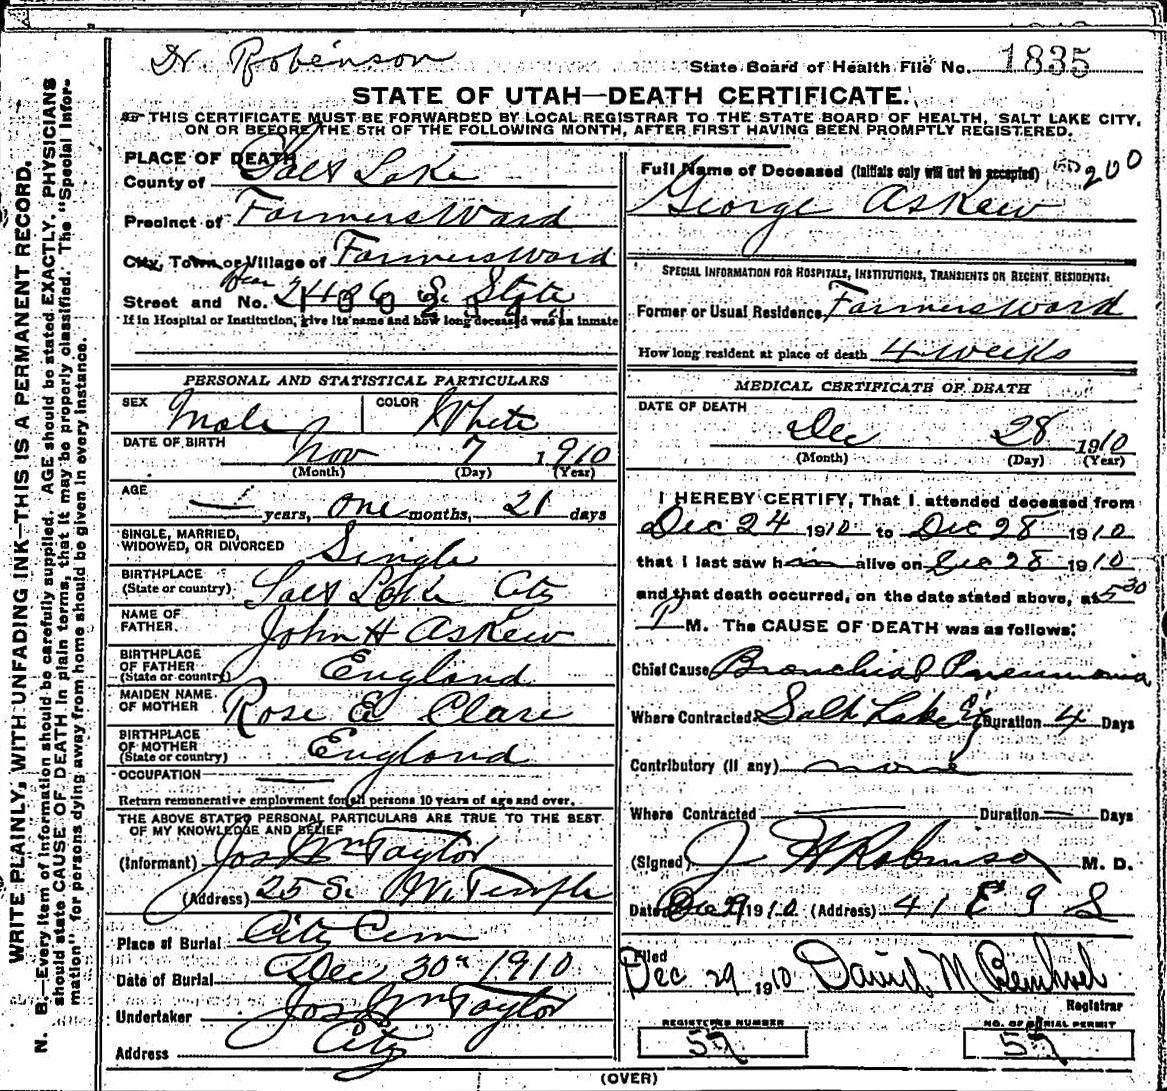 Dr Robinson
State Board of Health File No. 1835
STATE OF UTAH—DEATH CERTIFICATE.
THIS CERTIFICATE MUST BE FORWARDED BY LOCAL REGISTRAR TO THE STATE BOARD OF HEALTH, SALT LAKE CITY,
ON OR BEFORE THE 5TH OF THE FOLLOWING MONTH, AFTER FIRST HAVING BEEN PROMPTLY REGISTERED.
WRITE PLAINLY, WITH UNFADING INK—THIS IS A PERMANENT RECORD.
N. B.—Every item of information should be carefully supplied. AGE should be stated EXACTLY. PHYSICIANS
should state CAUSE OF DEATH in plain terms, that it may be properly classified. The "Special Infor-
mation" for persons dying away from home should be given in every instance.
PLACE OF DEATH
County of Salt Lake
Precinct of Farmers Ward
City, Town or Village of Farmers Ward
Near
Street and No. S. State
If in Hospital or Institution, give its name and how long deceased was an inmate
PERSONAL AND STATISTICAL PARTICULARS
SEX Male COLOR White
DATE OF BIRTH Nov 7 1910
(Month) (Day) (Year)
AGE — years, one months, 21 days
SINGLE, MARRIED,
WIDOWED, OR DIVORCED Single
BIRTHPLACE
(State or country) Salt Lake City
NAME OF
FATHER John H Askew
BIRTHPLACE
OF FATHER
(State or country) England
MAIDEN NAME
OF MOTHER Rose E Clare
BIRTHPLACE
OF MOTHER
(State or country) England
OCCUPATION —
Return remunerative employment for all persons 10 years of age and over.
THE ABOVE STATED PERSONAL PARTICULARS ARE TRUE TO THE BEST
OF MY KNOWLEDGE AND BELIEF
(Informant) Jos Wm Taylor
(Address) 25 S. W. Temple
Place of Burial City Cem
Date of Burial Dec 30th 1910
Undertaker Jos Wm Taylor
Address City
Full Name of Deceased (Initials only will not be accepted) 200
George Askew
SPECIAL INFORMATION FOR HOSPITALS, INSTITUTIONS, TRANSIENTS OR RECENT RESIDENTS.
Former or Usual Residence Farmers Ward
How long resident at place of death 4 weeks
MEDICAL CERTIFICATE OF DEATH
DATE OF DEATH
Dec 28 1910
(Month) (Day) (Year)
I HEREBY CERTIFY, That I attended deceased from
Dec 24 1910 to Dec 28 1910
that I last saw him alive on Dec 28 1910
and that death occurred, on the date stated above, at 5 30
P M. The CAUSE OF DEATH was as follows:
Chief Cause Bronchial Pneumonia
Where Contracted Salt Lake Cy Duration 4 Days
Contributory (if any) none
Where Contracted — Duration — Days
(Signed) J H Robinson M. D.
Date Dec 29 1910 (Address) 41 E 9 S
Filed
Dec 29 1910 David M
Registrar
REGISTERED NUMBER NO. OF BURIAL PERMIT
57 57
(OVER)